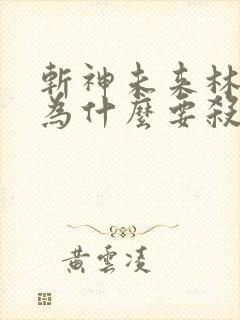 斬神未來林
為什麼要殺
黃雲凌